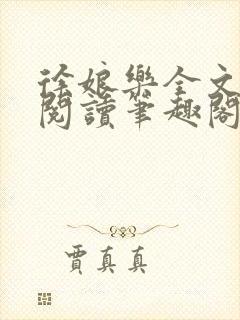 徐娘樂全文
閱讀筆趣閣
賈真真